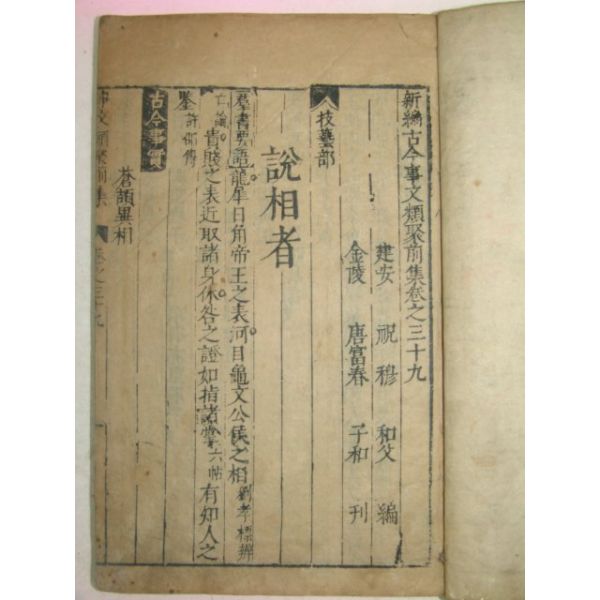 新編古今事文類聚前集卷之三十九
建安 祝穆 和父 編
金陵 唐富春 子和 刊
技藝部
說相者
羣書要語龍犀日角帝王之表河目龜文公侯之相劉孝標辨
亡論貴賤之表近取諸身休咎之證如指諸掌六帖有知人之
鉴許邵傳
古今事實
蒼頡異相
事文類聚前集 卷之三十九